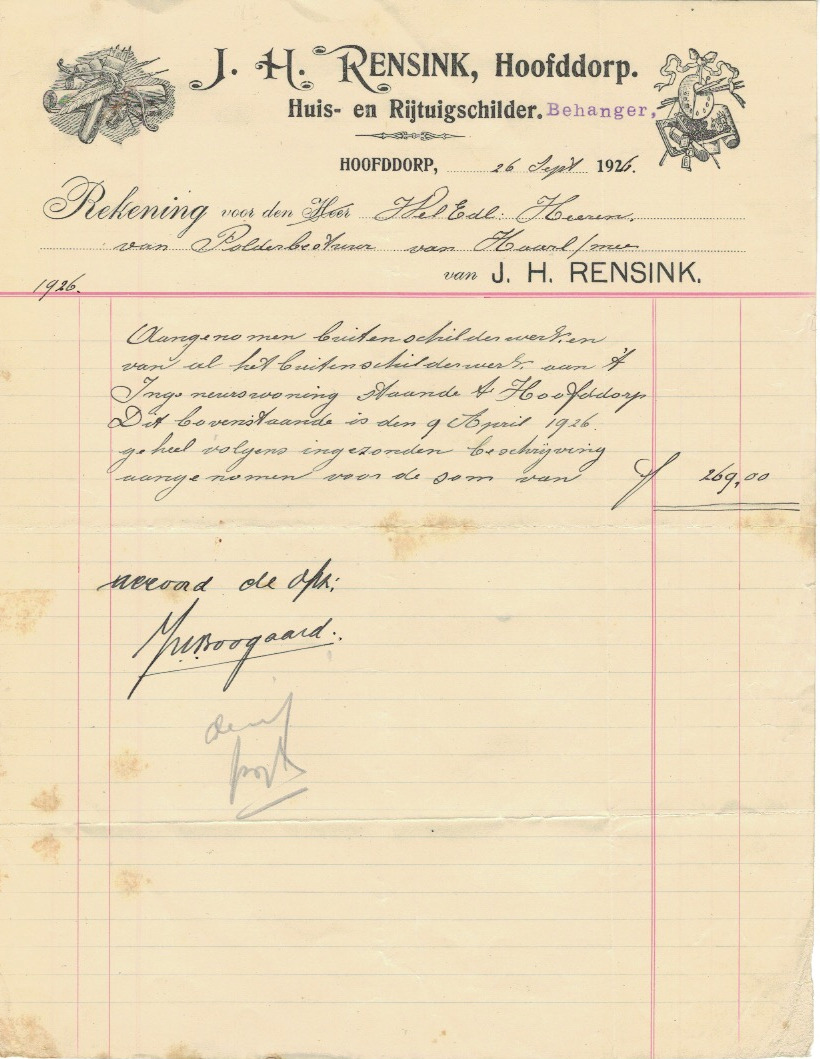 J. H. RENSINK, Hoofddorp.
Huis- en Rijtuigschilder. Behanger,
HOOFDDORP, 26 Sept 1926.
Rekening voor den Heer Wel Edl: Heeren.
van Polderbestuur van Haarl/mee
van J. H. RENSINK.
1926.
Aangenomen buitenschilderwerk en
van al het buitenschilderwerk aan 't
Ingeneurswoning staande te Hoofddorp
Dit bovenstaande is den 9 April 1926.
geheel volgens ingezonden beschrijving
aangenomen voor de som van f 269,00
accoord de Opz:
Boogaard.